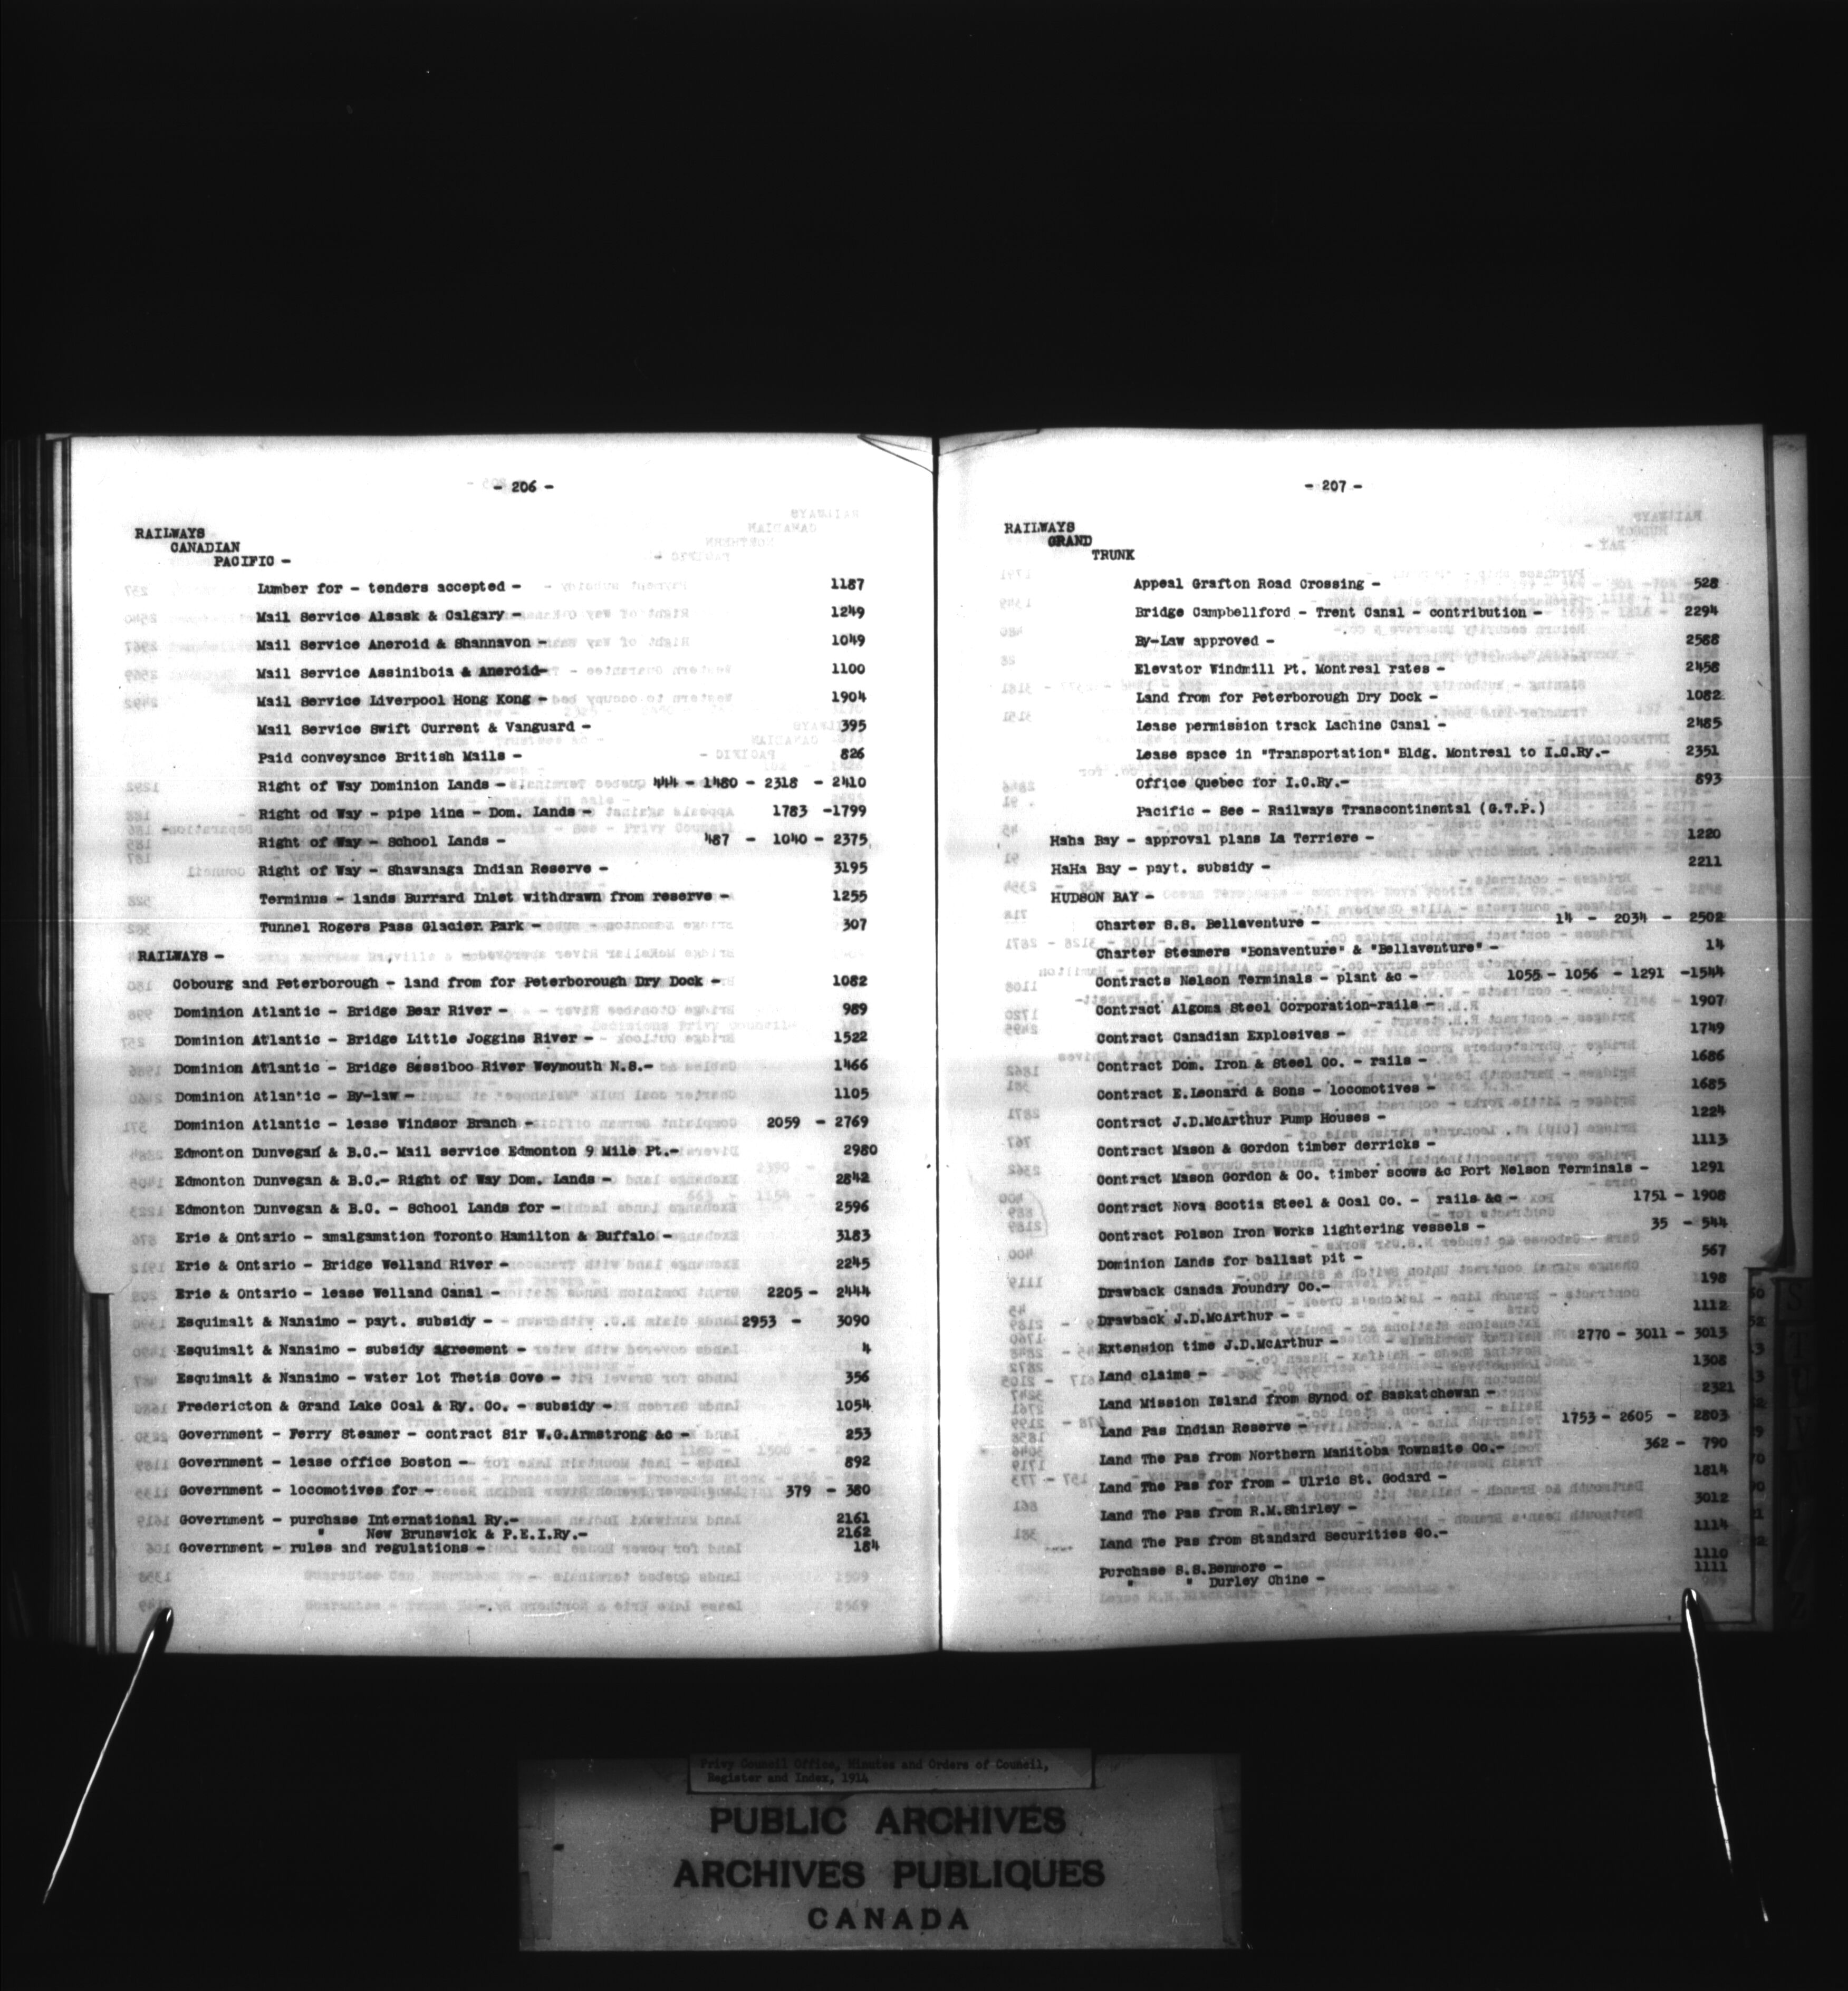 - 206 -
RAILWAYS
CANADIAN
PACIFIC -
Lumber for - tenders accepted - 1187
Mail Service Alsask & Calgary - 1249
Mail Service Aneroid & Shannavon - 1049
Mail Service Assiniboia & Aneroid- 1100
Mail Service Liverpool Hong Kong - 1904
Mail Service Swift Current & Vanguard - 395
Paid conveyance British Mails - 826
Right of Way Dominion Lands - 444 - 1480 - 2318 - 2410
Right od Way - pipe line - Dom. Lands - 1783 -1799
Right of Way - School Lands - 487 - 1040 - 2375
Right of Way - Shawanaga Indian Reserve - 3195
Terminus - lands Burrard Inlet withdrawn from reserve - 1255
Tunnel Rogers Pass Glacier Park - 307
RAILWAYS -
Cobourg and Peterborough - land from for Peterborough Dry Dock - 1082
Dominion Atlantic - Bridge Bear River - 989
Dominion Atlantic - Bridge Little Joggins River - 1522
Dominion Atlantic - Bridge Sessiboo River Weymouth N.S.- 1466
Dominion Atlantic - By-law - 1105
Dominion Atlantic - lease Windsor Branch - 2059 - 2769
Edmonton Dunvegan & B.C.- Mail service Edmonton 9 Mile Pt.- 2980
Edmonton Dunvegan & B.C.- Right of Way Dom. Lands - 2842
Edmonton Dunvegan & B.C. - School Lands for - 2596
Erie & Ontario - amalgamation Toronto Hamilton & Buffalo - 3183
Erie & Ontario - Bridge Welland River - 2245
Erie & Ontario - lease Welland Canal - 2205 - 2444
Esquimalt & Nanaimo - payt. subsidy - 2953 - 3090
Esquimalt & Nanaimo - subsidy agreement - 4
Esquimalt & Nanaimo - water lot Thetis Cove - 356
Fredericton & Grand Lake Coal & Ry. Co. - subsidy - 1054
Government - Ferry Steamer - contract Sir W.G.Armstrong &c - 253
Government - lease office Boston - 892
Government - locomotives for - 379 - 380
Government - purchase International Ry.- 2161
" New Brunswick & P.E.I.Ry.- 2162
Government - rules and regulations - 184
- 207 -
RAILWAYS
GRAND
TRUNK
Appeal Grafton Road Crossing - 528
Bridge Campbellford - Trent Canal - contribution - 2294
By-Law approved - 2588
Elevator Windmill Pt. Montreal rates - 2458
Land from for Peterborough Dry Dock - 1082
Lease permission track Lachine Canal - 2485
Lease space in "Transportation" Bldg. Montreal to I.C.Ry.- 2351
Office Quebec for I.C.Ry.- 893
Pacific - See - Railways Transcontinental (G.T.P.)
Haha Bay - approval plans La Terriere - 1220
HaHa Bay - payt. subsidy - 2211
HUDSON BAY -
Charter S.S. Bellaventure - 14 - 2034 - 2502
Charter Steamers "Bonaventure" & "Bellaventure" - 14
Contracts Nelson Terminals - plant &c - 1055 - 1056 - 1291 -1544
Contract Algoma Steel Corporation-rails - 1907
Contract Canadian Explosives - 1749
Contract Dom. Iron & Steel Co. - rails - 1686
Contract E.Leonard & Sons - locomotives - 1685
Contract J.D.McArthur Pump Houses - 1224
Contract Mason & Gordon timber derricks - 1113
Contract Mason Gordon & Co. timber scows &c Port Nelson Terminals - 1291
Contract Nova Scotia Steel & Coal Co. - rails &c - 1751 - 1908
Contract Polson Iron Works lightering vessels - 35 - 544
Dominion Lands for ballast pit - 567
Drawback Canada Foundry Co.- 198
Drawback J.D.McArthur - 1112
Extension time J.D.McArthur - 2770 - 3011 - 3013
Land claims - 1308
Land Mission Island from Synod of Saskatchewan - 2321
Land Pas Indian Reserve - 1753 - 2605 - 2803
Land The Pas from Northern Manitoba Townsite Co.- 362 - 790
Land The Pas for from - Ulric St. Godard - 1814
Land The Pas from R.M.Shirley - 3012
Land The Pas from Standard Securities Co.- 1114
Purchase S.S.Benmore - 1110
" " Durley Chine - 1111
Privy Council Office, Minutes and Orders of Council,
Register and Index, 1914
PUBLIC ARCHIVES
ARCHIVES PUBLIQUES
CANADA